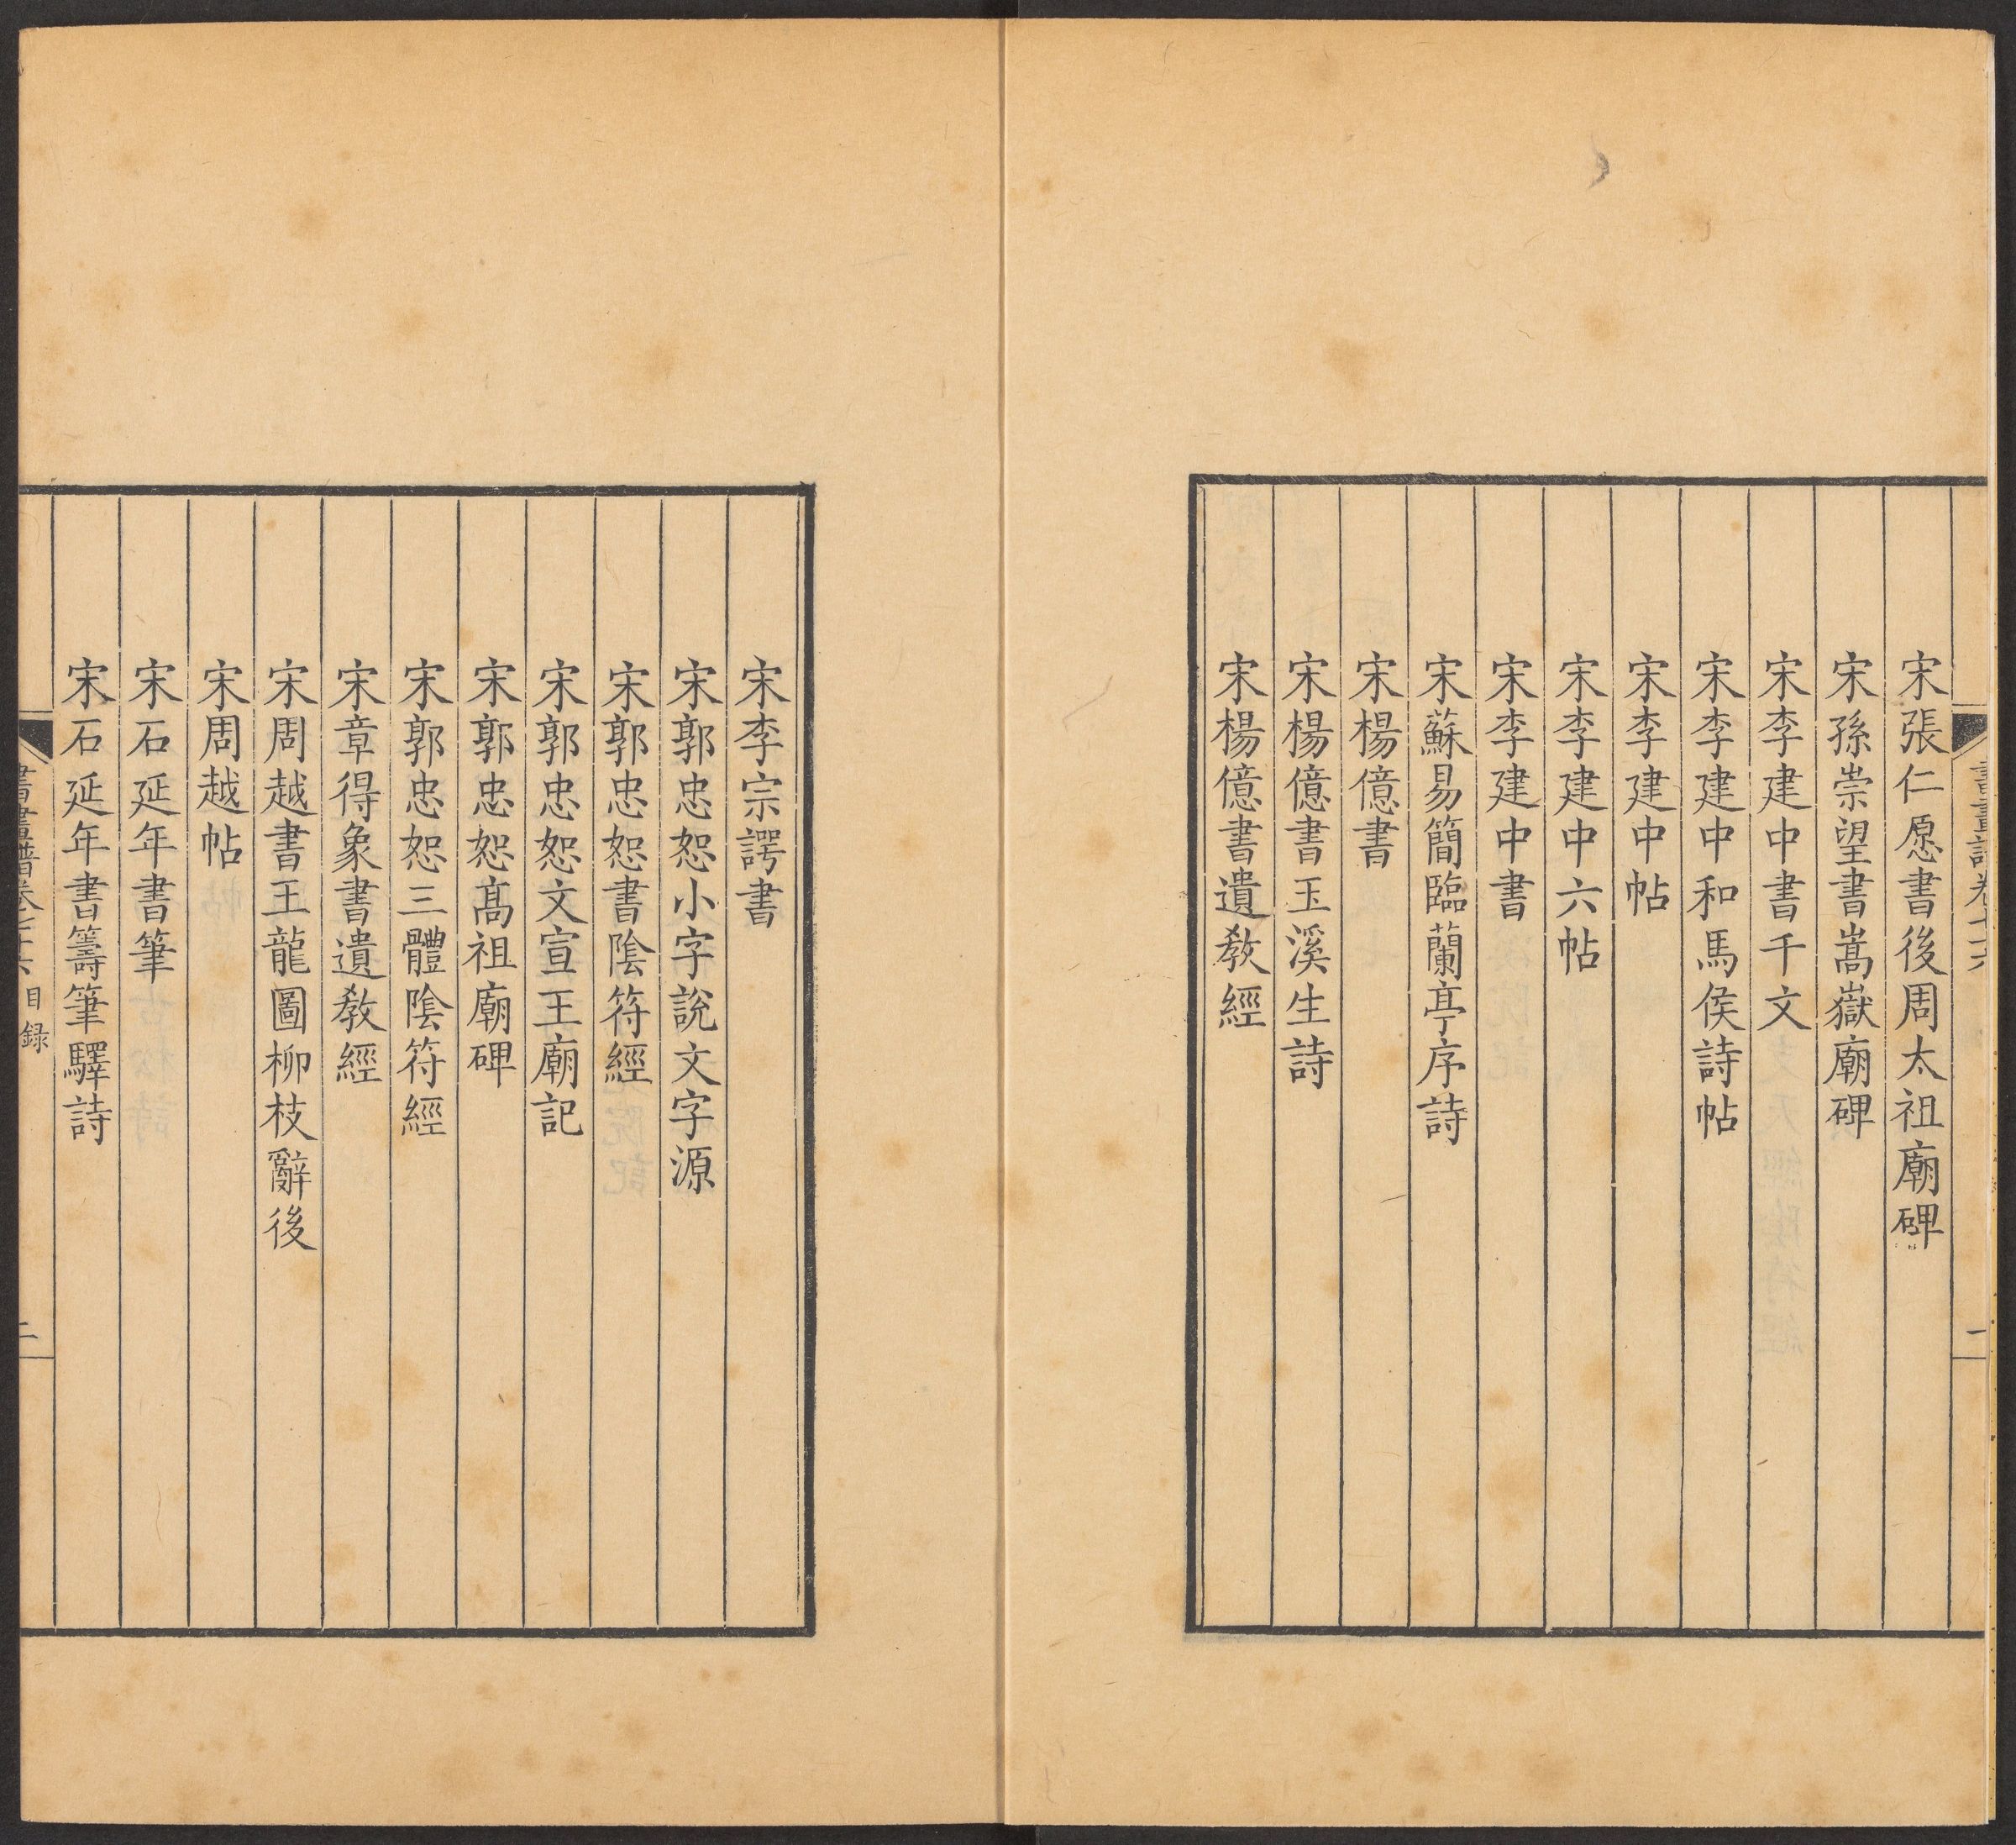 宋張仁愿書後周太祖廟碑
宋孫崇望書嵩嶽廟碑
宋李建中書千文
宋李建中和馬侯詩帖
宋李建中帖
宋李建中六帖
宋李建中書
宋蘇易簡臨蘭亭序詩
宋楊億書
宋楊億書玉溪生詩
宋楊億書遺敎經
宋李宗諤書
宋郭忠恕小字說文字源
宋郭忠恕書陰符經
宋郭忠恕文宣王廟記
宋郭忠恕髙祖廟碑
宋郭忠恕三體陰符經
宋章得象書遺敎經
宋周越書王龍圖柳枝辭後
宋周越帖
宋石延年書筆
宋石延年書籌筆驛詩
書畫譜卷七十六 目録 二